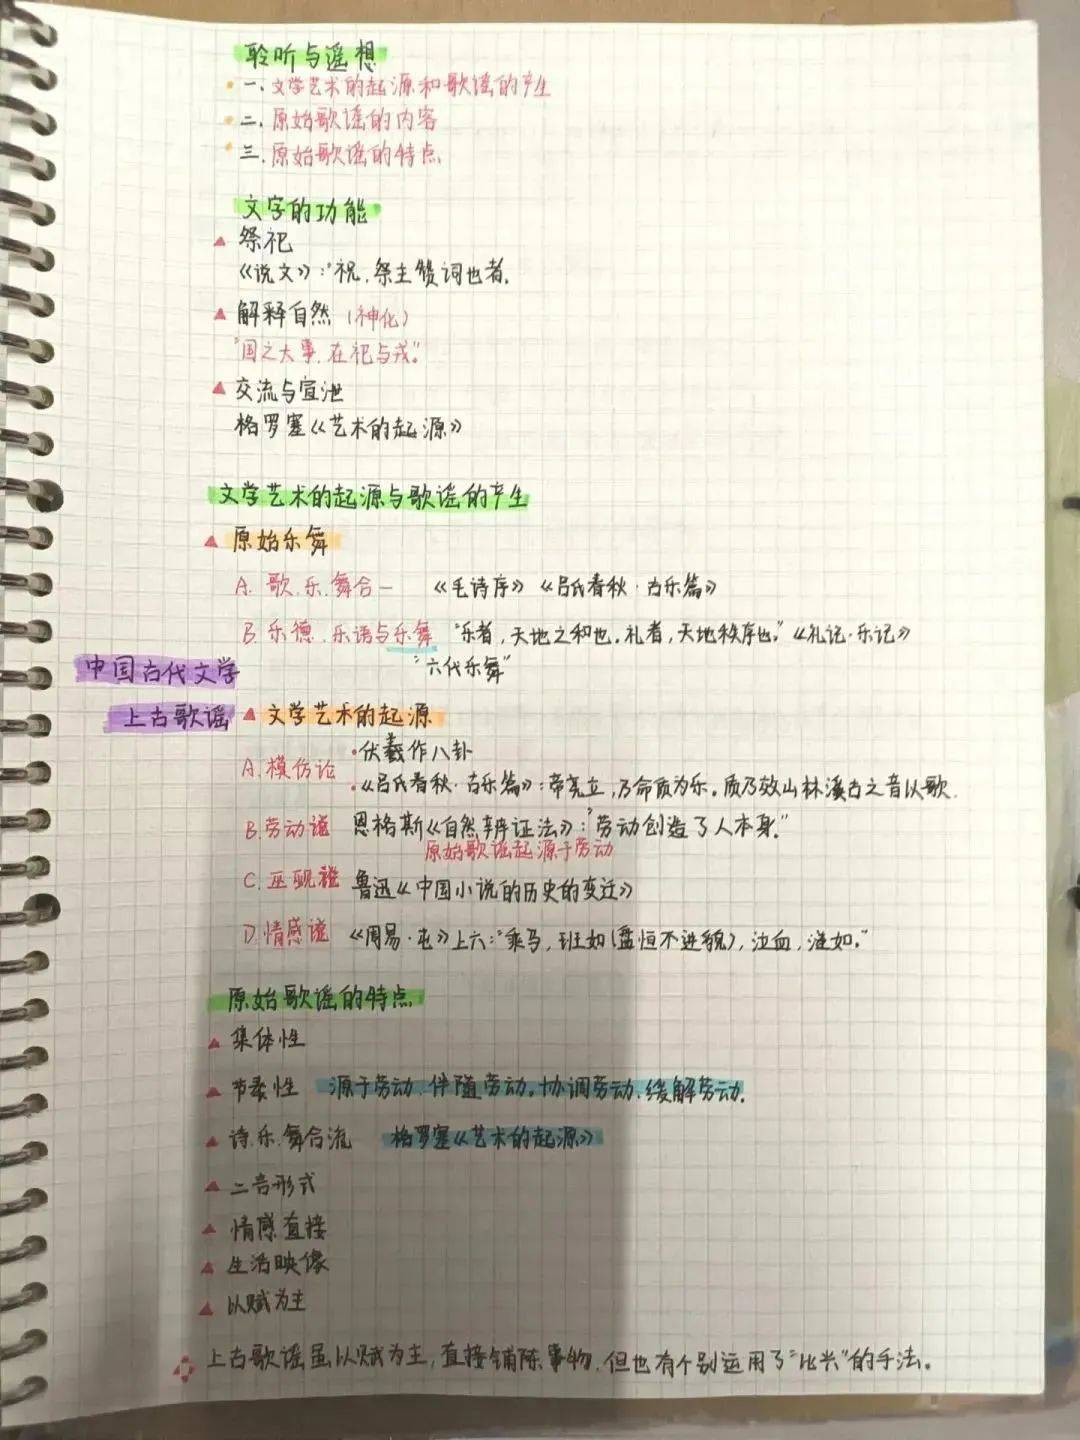 聆听与遥想
一.文学艺术的起源和歌谣的产生
二.原始歌谣的内容
三.原始歌谣的特点
文字的功能
▲祭祀
《说文》:"祝,祭主赞词也者.
▲解释自然(神化)
"国之大事.在祀与戎."
▲交流与宣泄
格罗塞《艺术的起源》
文学艺术的起源与歌谣的产生
▲原始乐舞
A.歌.乐.舞合一 《毛诗序》《吕氏春秋·古乐篇》
B.乐德.乐语与乐舞 "乐者,天地之和也.礼者,天地秩序也."《礼记·乐记》
"六代乐舞"
中国古代文学
上古歌谣
▲文学艺术的起源
A.模仿论 ·伏羲作八卦
·《吕氏春秋·古乐篇》:帝尧立,乃命质为乐。质乃效山林溪古之音以歌.
B.劳动说 恩格斯《自然辨证法》:"劳动创造了人本身."
原始歌谣起源于劳动
C.巫觋说 鲁迅《中国小说的历史的变迁》
D.情感说 《周易·屯》上六:"乘马,班如(盘恒不进貌),泣血,涟如."
原始歌谣的特点
▲集体性
▲节奏性 源于劳动.伴随劳动.协调劳动.缓解劳动.
▲诗.乐.舞合流 格罗塞《艺术的起源》
▲二言形式
▲情感直接
▲生活映像
▲以赋为主
上古歌谣虽以赋为主,直接铺陈事物,但也有个别运用了"比兴"的手法。